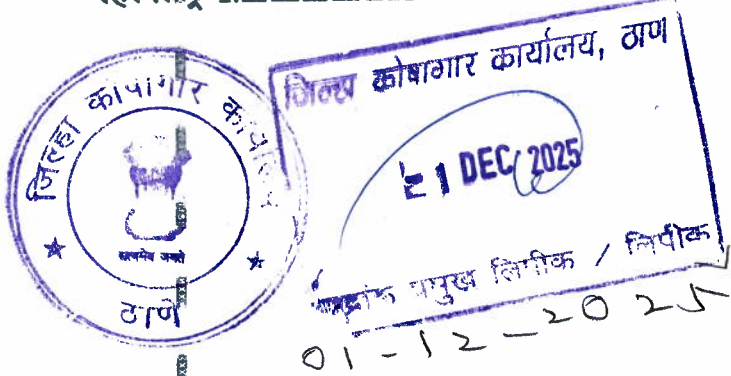 जिल्हा कोषागार कार्यालय
सत्यमेव जयते
ठाणे
जिल्हा कोषागार कार्यालय, ठाणे
1 DEC 2025
मुद्रांक प्रमुख लिपीक / लिपीक
01-12-2025